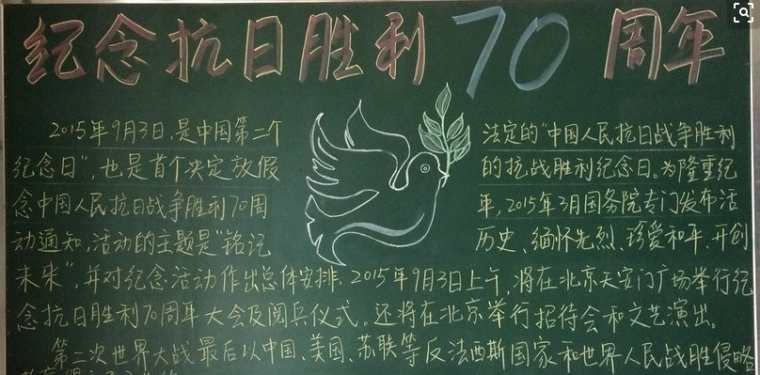 纪念抗日胜利70周年
2015年9月3日，是中国第二个法定的“中国人民抗日战争胜利
纪念日”，也是首个决定放假的抗战胜利纪念日。为隆重纪
念中国人民抗日战争胜利70周年，2015年3月国务院专门发布活
动通知，活动的主题是“铭记历史、缅怀先烈、珍爱和平、开创
未来”，并对纪念活动作出总体安排. 2015年9月3日上午，将在北京天安门广场举行纪
念抗日胜利70周年大会及阅兵仪式，还将在北京举行招待会和文艺演出。
第二次世界大战最后以中国、美国、苏联等反法西斯国家和世界人民战胜侵略